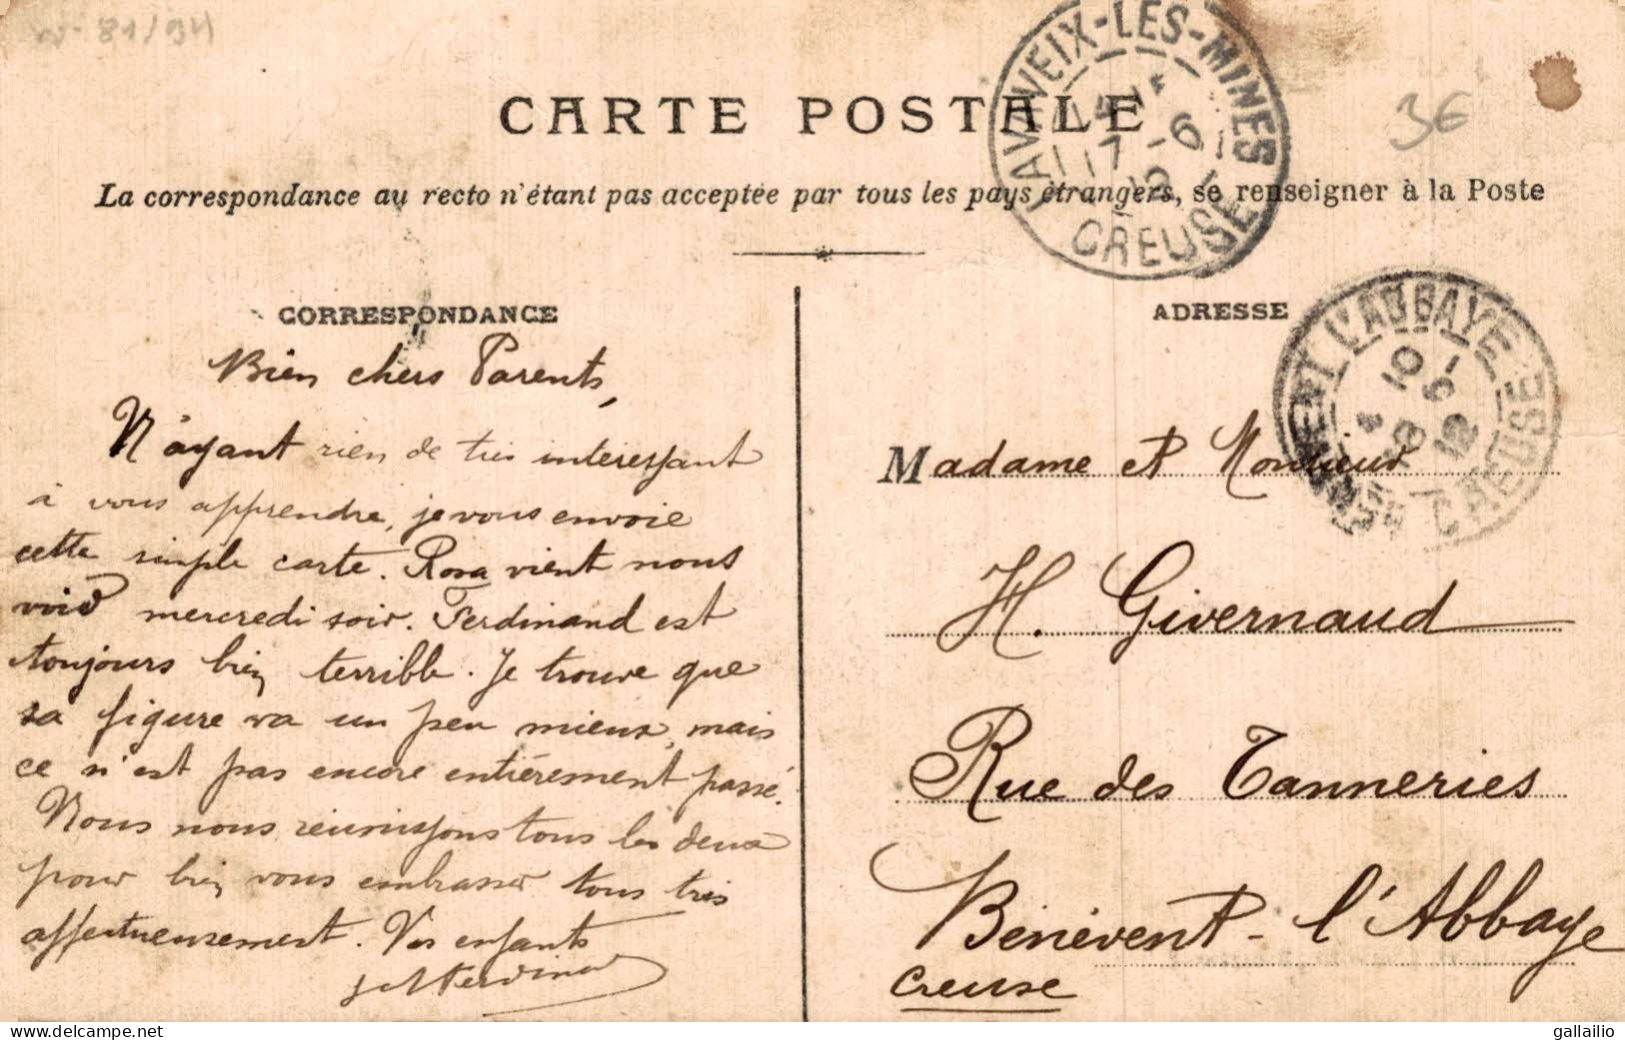 W-81/94
CARTE POSTALE
3€
La correspondance au recto n'étant pas acceptée par tous les pays étrangers, se renseigner à la Poste
LAVAVEIX-LES-MINES
17 -6
12
CREUSE
CORRESPONDANCE
Bien chers Parents,
N'ayant rien de très intéressant
à vous apprendre, je vous envoie
cette simple carte. Rosa vient nous
voir mercredi soir. Ferdinand est
toujours bien terrible. Je trouve que
sa figure va un peu mieux, mais
ce n'est pas encore entièrement passé.
Nous nous réunissons tous les deux
pour bien vous embrasser tous très
affectueusement. Vos enfants
ADRESSE
L'ABBAYE
10
18 -6
12
CREUSE
Madame et Monsieur
H. Givernaud
Rue des Tanneries
Bénévent-l'Abbaye
Creuse
gallailio